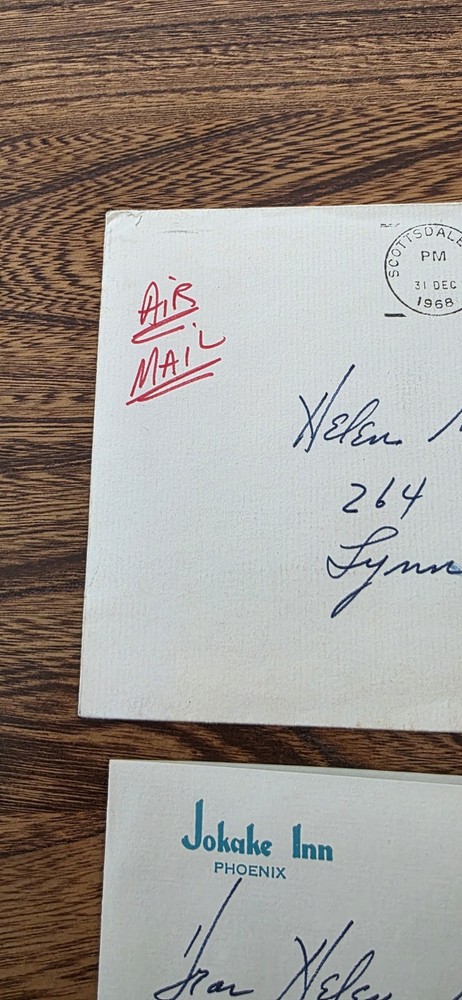 SCOTTSDALE
PM
31 DEC
1968
AiR
MAiL
Helen
264
Lynn
Jokake Inn
PHOENIX
Dear Helen